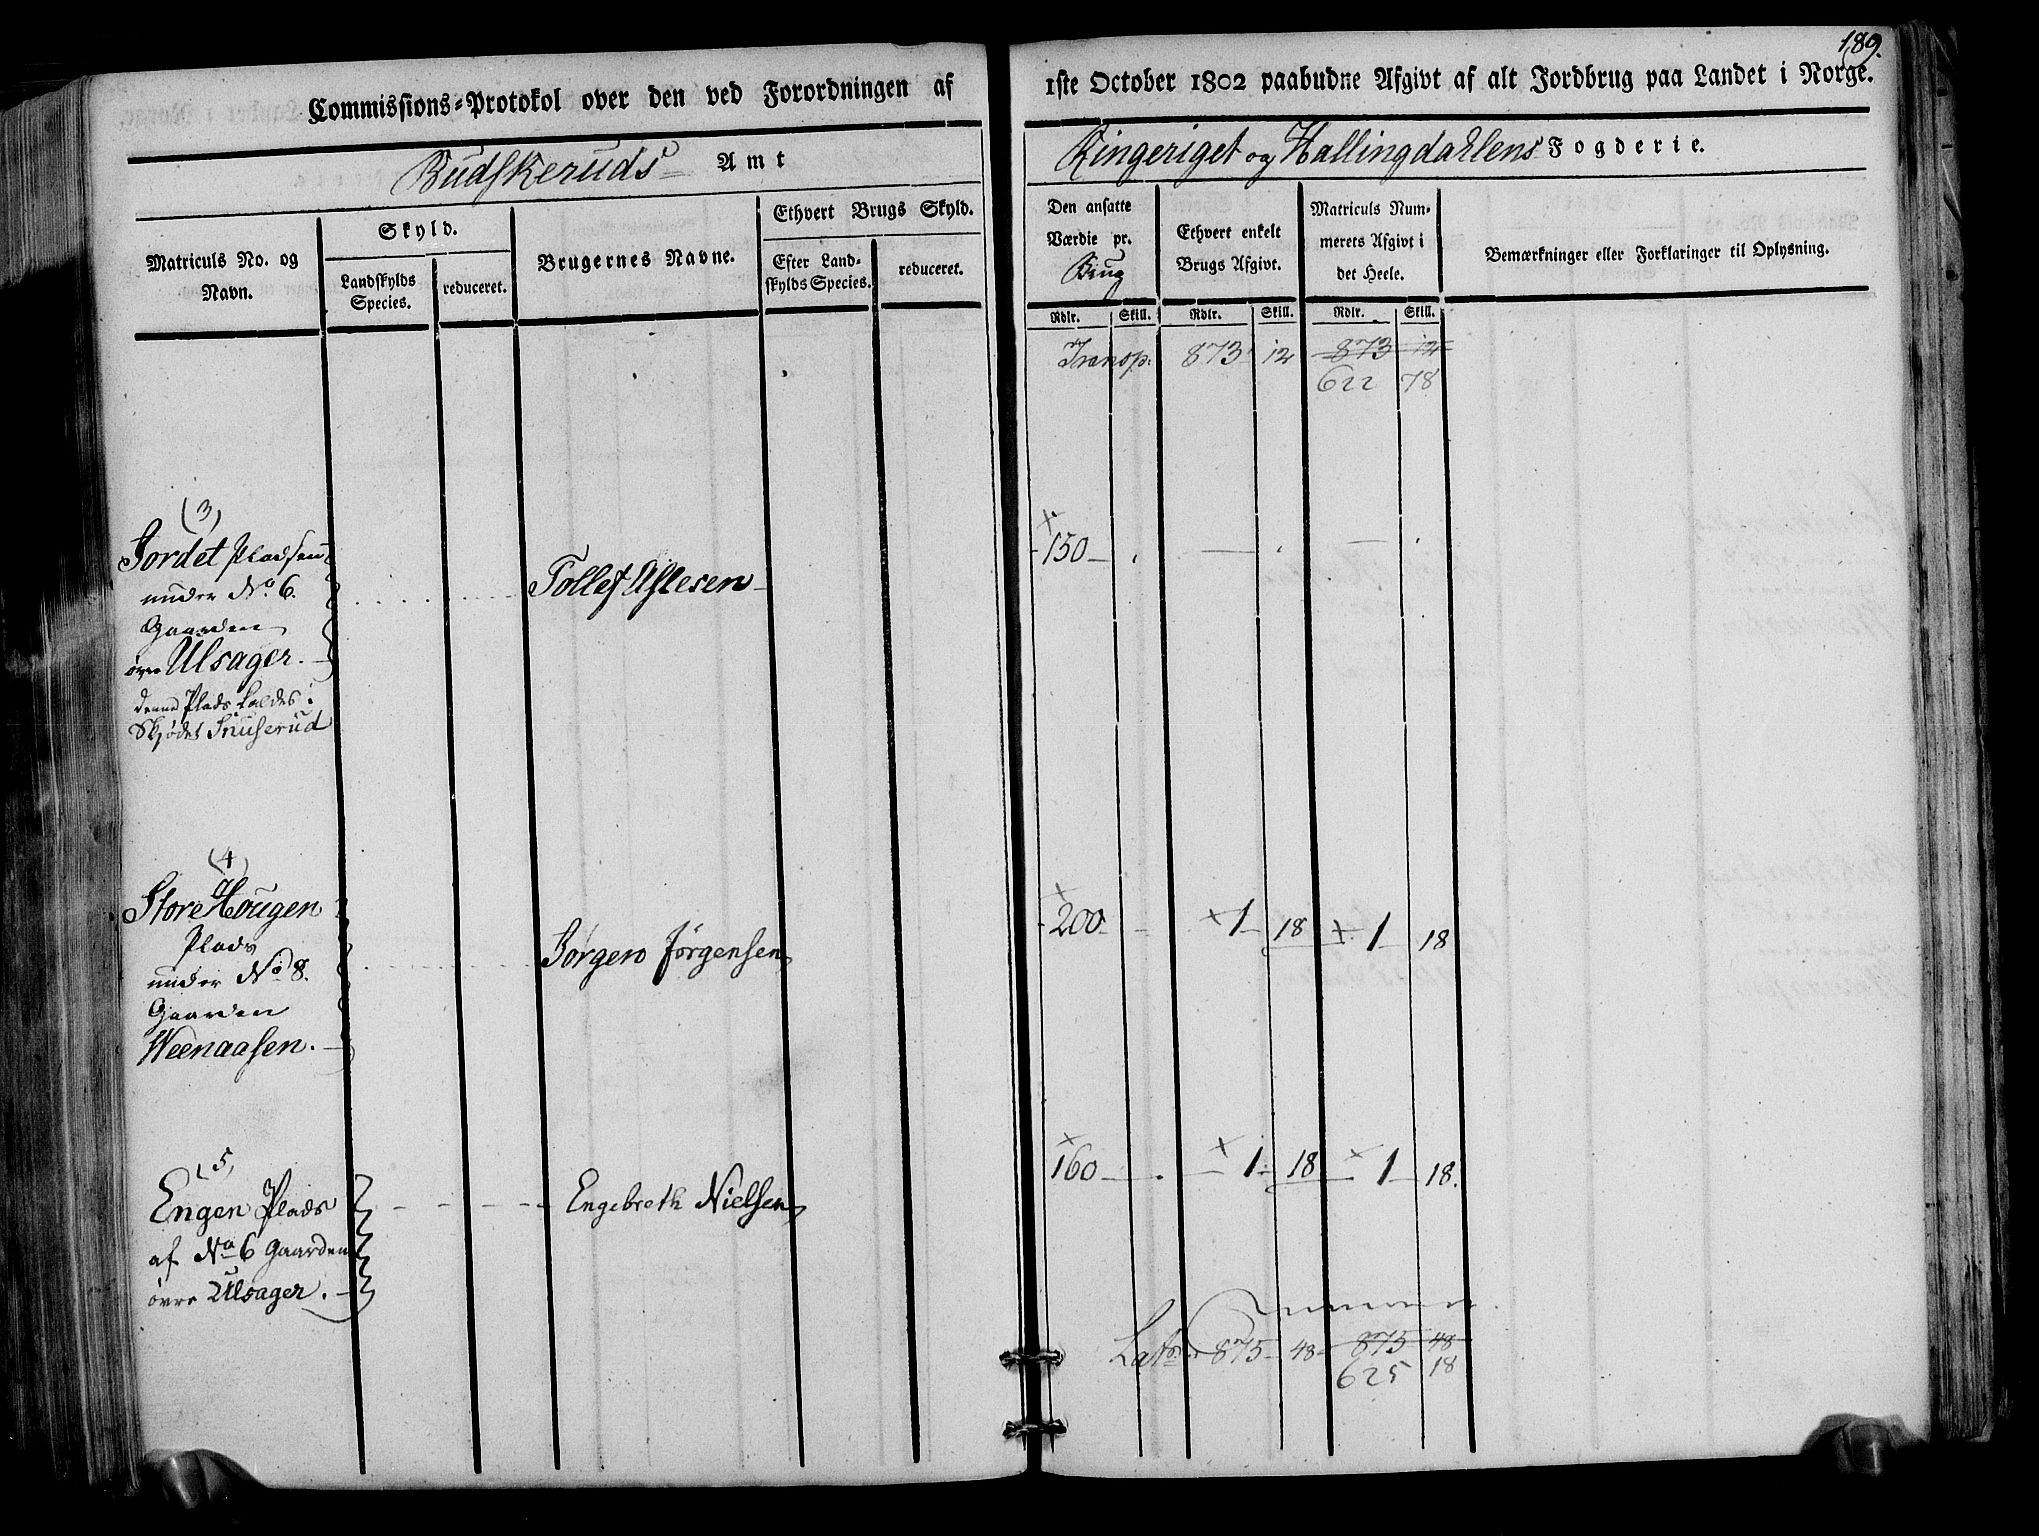 189.
Commissions-Protokol over den ved Forordningen af
1ste October 1802 paabudne Afgivt af alt Jordbrug paa Landet i Norge.
Budskeruds Amt
Ringeriget og Hallingdahlens Fogderie.
Matriculs No. og Navn.
Skyld.
Landskylds Species.
reduceret.
Brugernes Navne.
Ethvert Brugs Skyld.
Efter Landskylds Species.
reduceret.
Den ansatte Værdie pr. Brug
Ethvert enkelt Brugs Afgivt.
Matriculs Nummerets Afgivt i det Heele.
Bemærkninger eller Forklaringer til Oplysning.
Rdlr. Skill. Rdlr. Skill. Rdlr. Skill.
Transp. 873 12 873 12
622 78
(3)
Jordet Pladsen
under No. 6.
Gaarden
øvre Ulsager.
denne Plads kaldes i
Skjødet Snuserud
Tollef Aslesen
150
(4)
Store Hougen
Plads
under No 8.
Gaarden
Weenaasen.
Jørgen Jørgensen
200 1 18 1 18
(5)
Engen Plads
af No 6 Gaarden
øvre Ulsager.
Engebreth Nielsen
160 1 18 1 18.
Lats 875 48 875 48
625 18